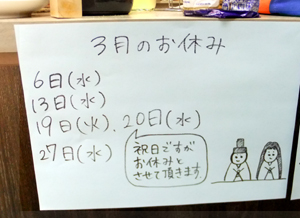 3月のお休み
6日(水)
13日(水)
19日(火)、20日(水)
27日(水)
祝日ですが
お休みと
させて頂きます